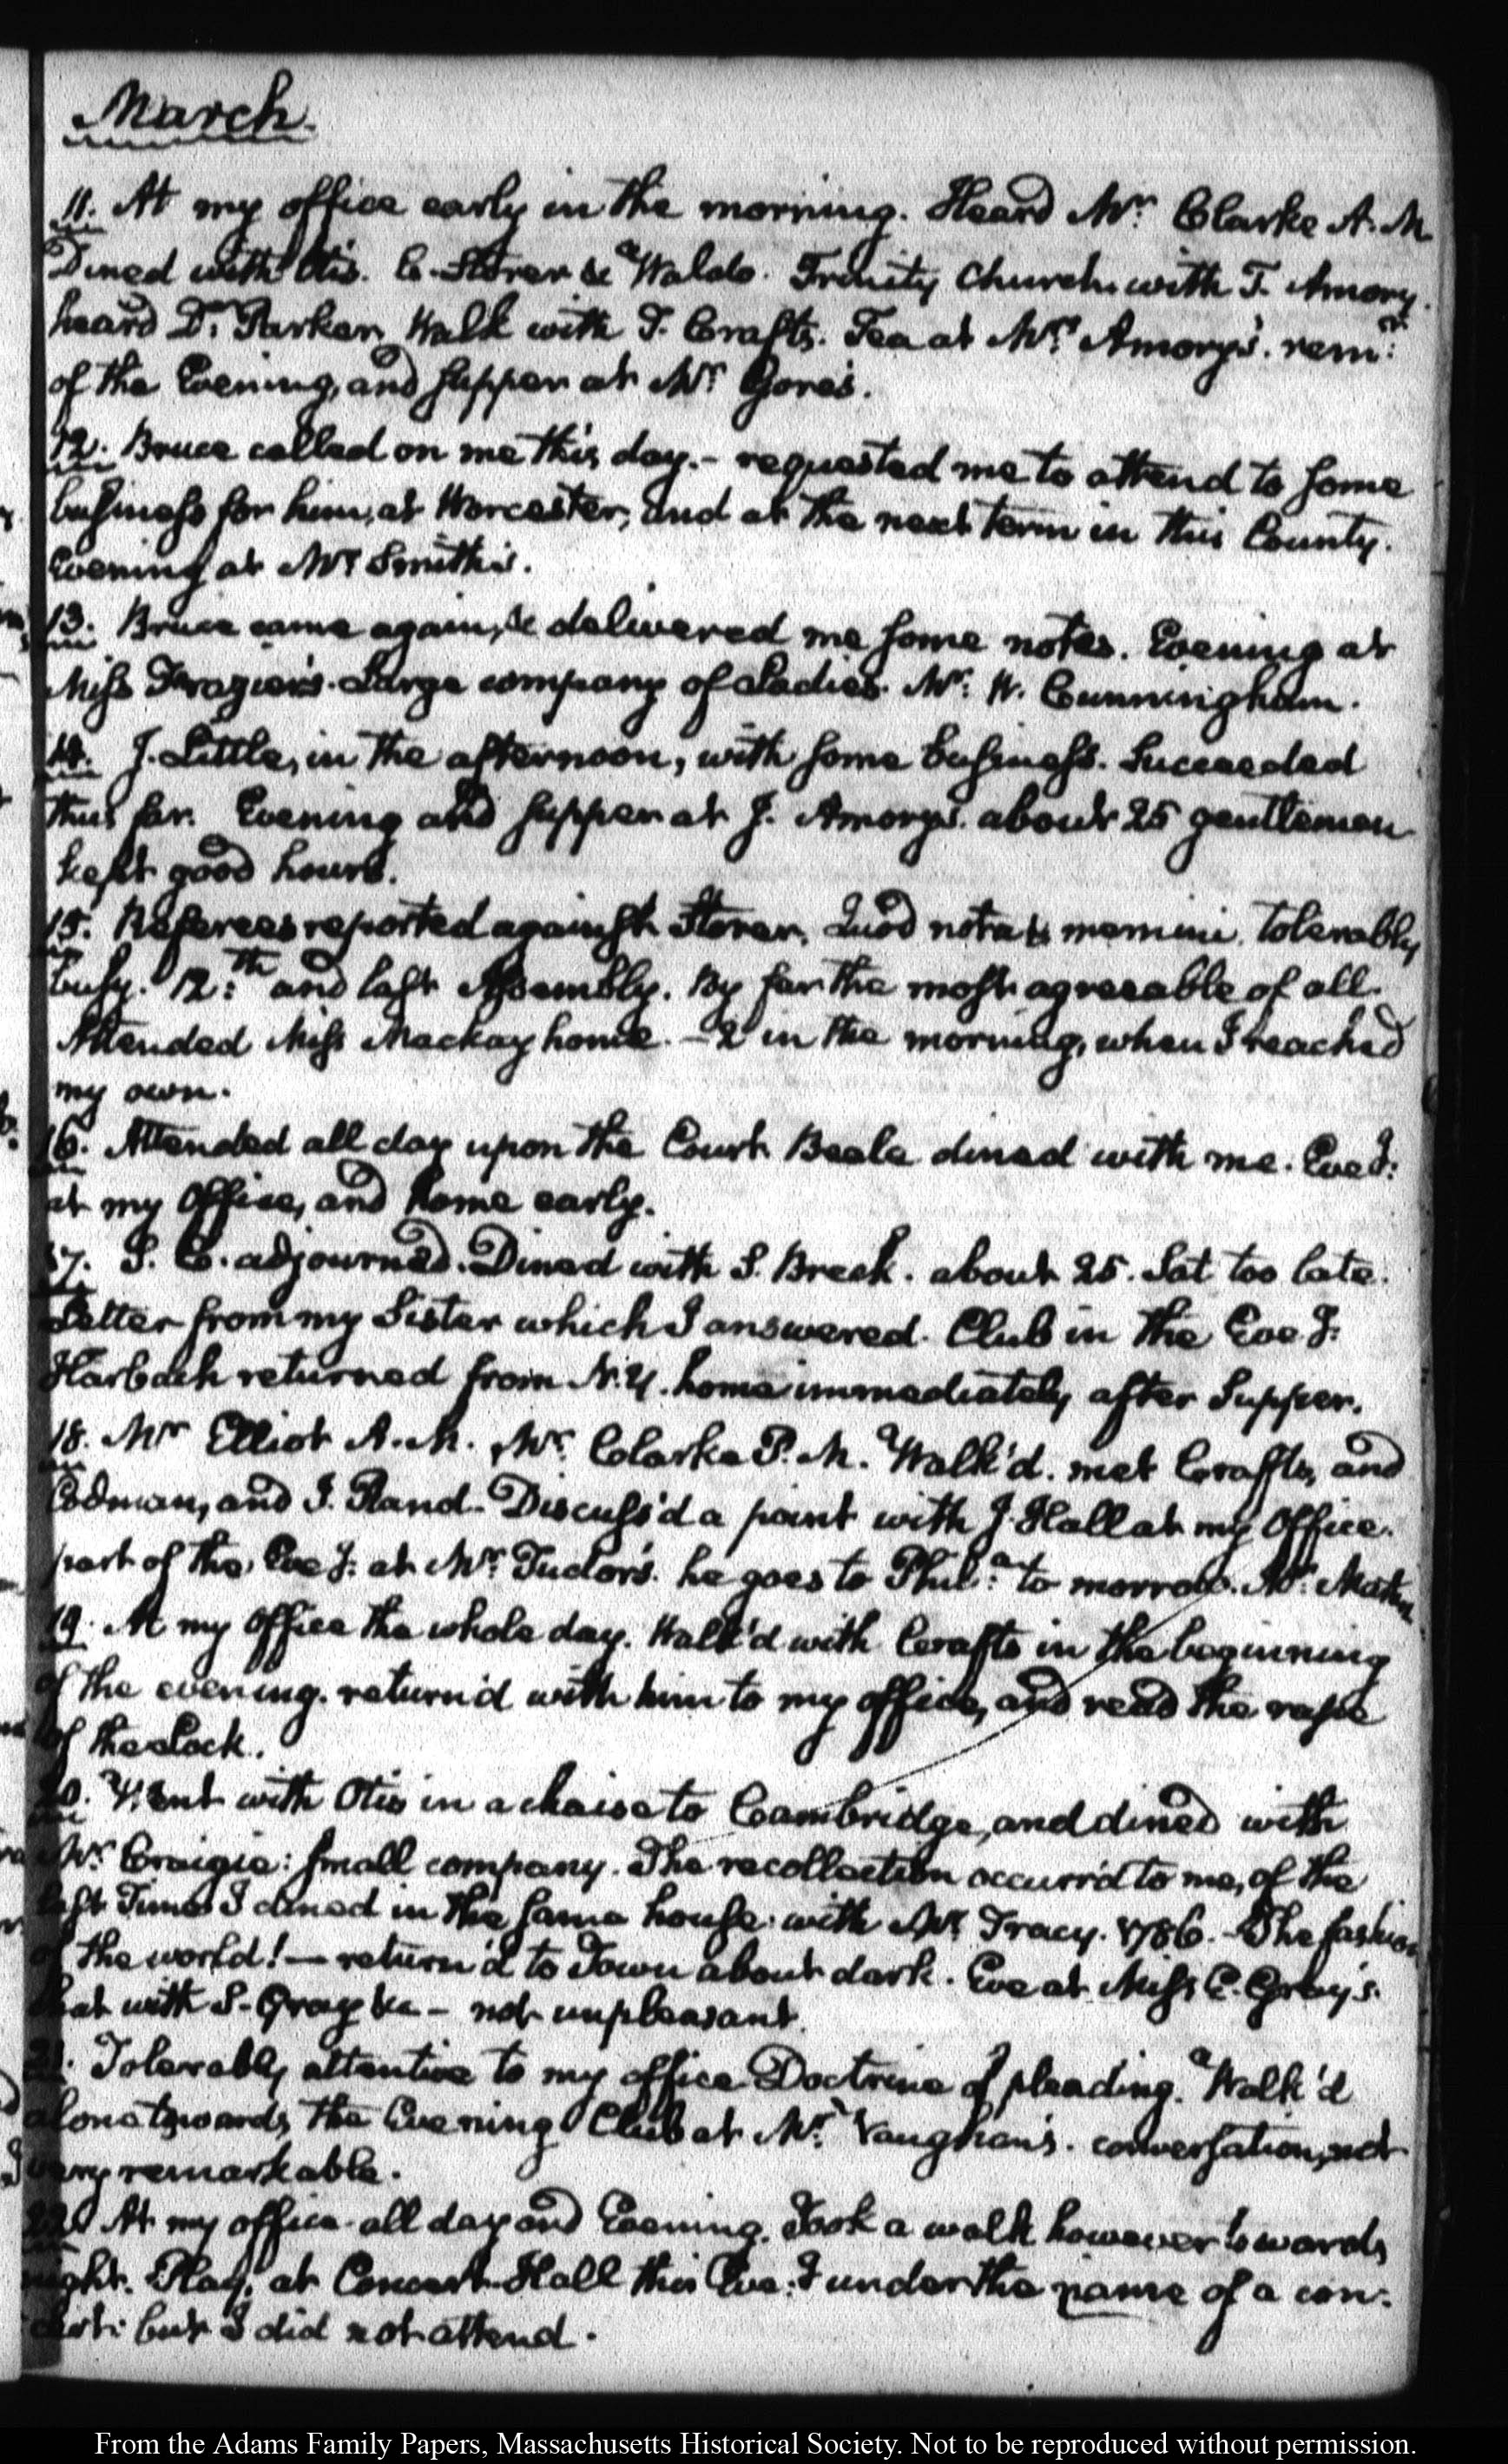 March.
11. At my office early in the morning. Heard Mr. Clarke A.M.
Dined with Otis. C. Storer & Waldo. Trinity Church with T. Amory.
heard Dr. Parker. Walk with T. Crafts. Tea at Mrs. Amory's. remr:
of the Evening, and supper at Mr. Gore's.
12. Bruce called on me this day. - requested me to attend to some
business for him, at Worcester, and at the next term in this County.
Evening at Mr Smith's.
13. Bruce came again, & delivered me some notes. Evening at
Miss Frazier's. Large company of Ladies. Mr. W. Cunningham.
14. J. Little, in the afternoon, with some business. Succeeded
thus far. Evening and supper at J. Amory's. about 25 gentlemen
kept good hours.
15. Referees reported against Storer. Quod nota & memini. tolerably
busy. 12:th and last Assembly. By far the most agreeable of all.
Attended Miss Mackay home. - 2 in the morning, when I reached
my own.
16. Attended all day upon the Court. Beale dined with me. Eveg:
at my Office, and home early.
17. S. C. adjourned. Dined with S. Breck. about 25. Sat too late.
Letter from my Sister which I answered. Club in the Eveg:
Harbach returned from N.Y. home immediately after Supper.
18. Mr Elliot A.M. Mr. Clarke P.M. Walk'd. met Crafts, and
Codman, and I. Rand. Discuss'd a point with J. Hall at my Office.
part of the Eveg: at Mr. Tudor's. he goes to Phil:a to morrow. Mr.
19. At my Office the whole day. Walk'd with Crafts in the beginning
of the evening. return'd with him to my office, and read the rape
of the Lock.
20. Went with Otis in a chaise to Cambridge, and dined with
Mr. Craigie: small company. The recollection occurr'd to me, of the
last Time I dined in the same house with Mr. Tracy. 1786. - The fashion
of the world! — return'd to Town about dark. Eve at Miss C. Gray's.
Chat with S. Gray &c - not unpleasant.
21. Tolerably attentive to my office. Doctrine of pleading. Walk'd
alone towards the Evening. Club at Mr. Vaughan's. conversation, not
very remarkable.
22. At my office all day and Evening. Took a walk however towards
night. Play, at Concert Hall this Eve:g under the name of a con:
cert: but I did not attend.
From the Adams Family Papers, Massachusetts Historical Society. Not to be reproduced without permission.